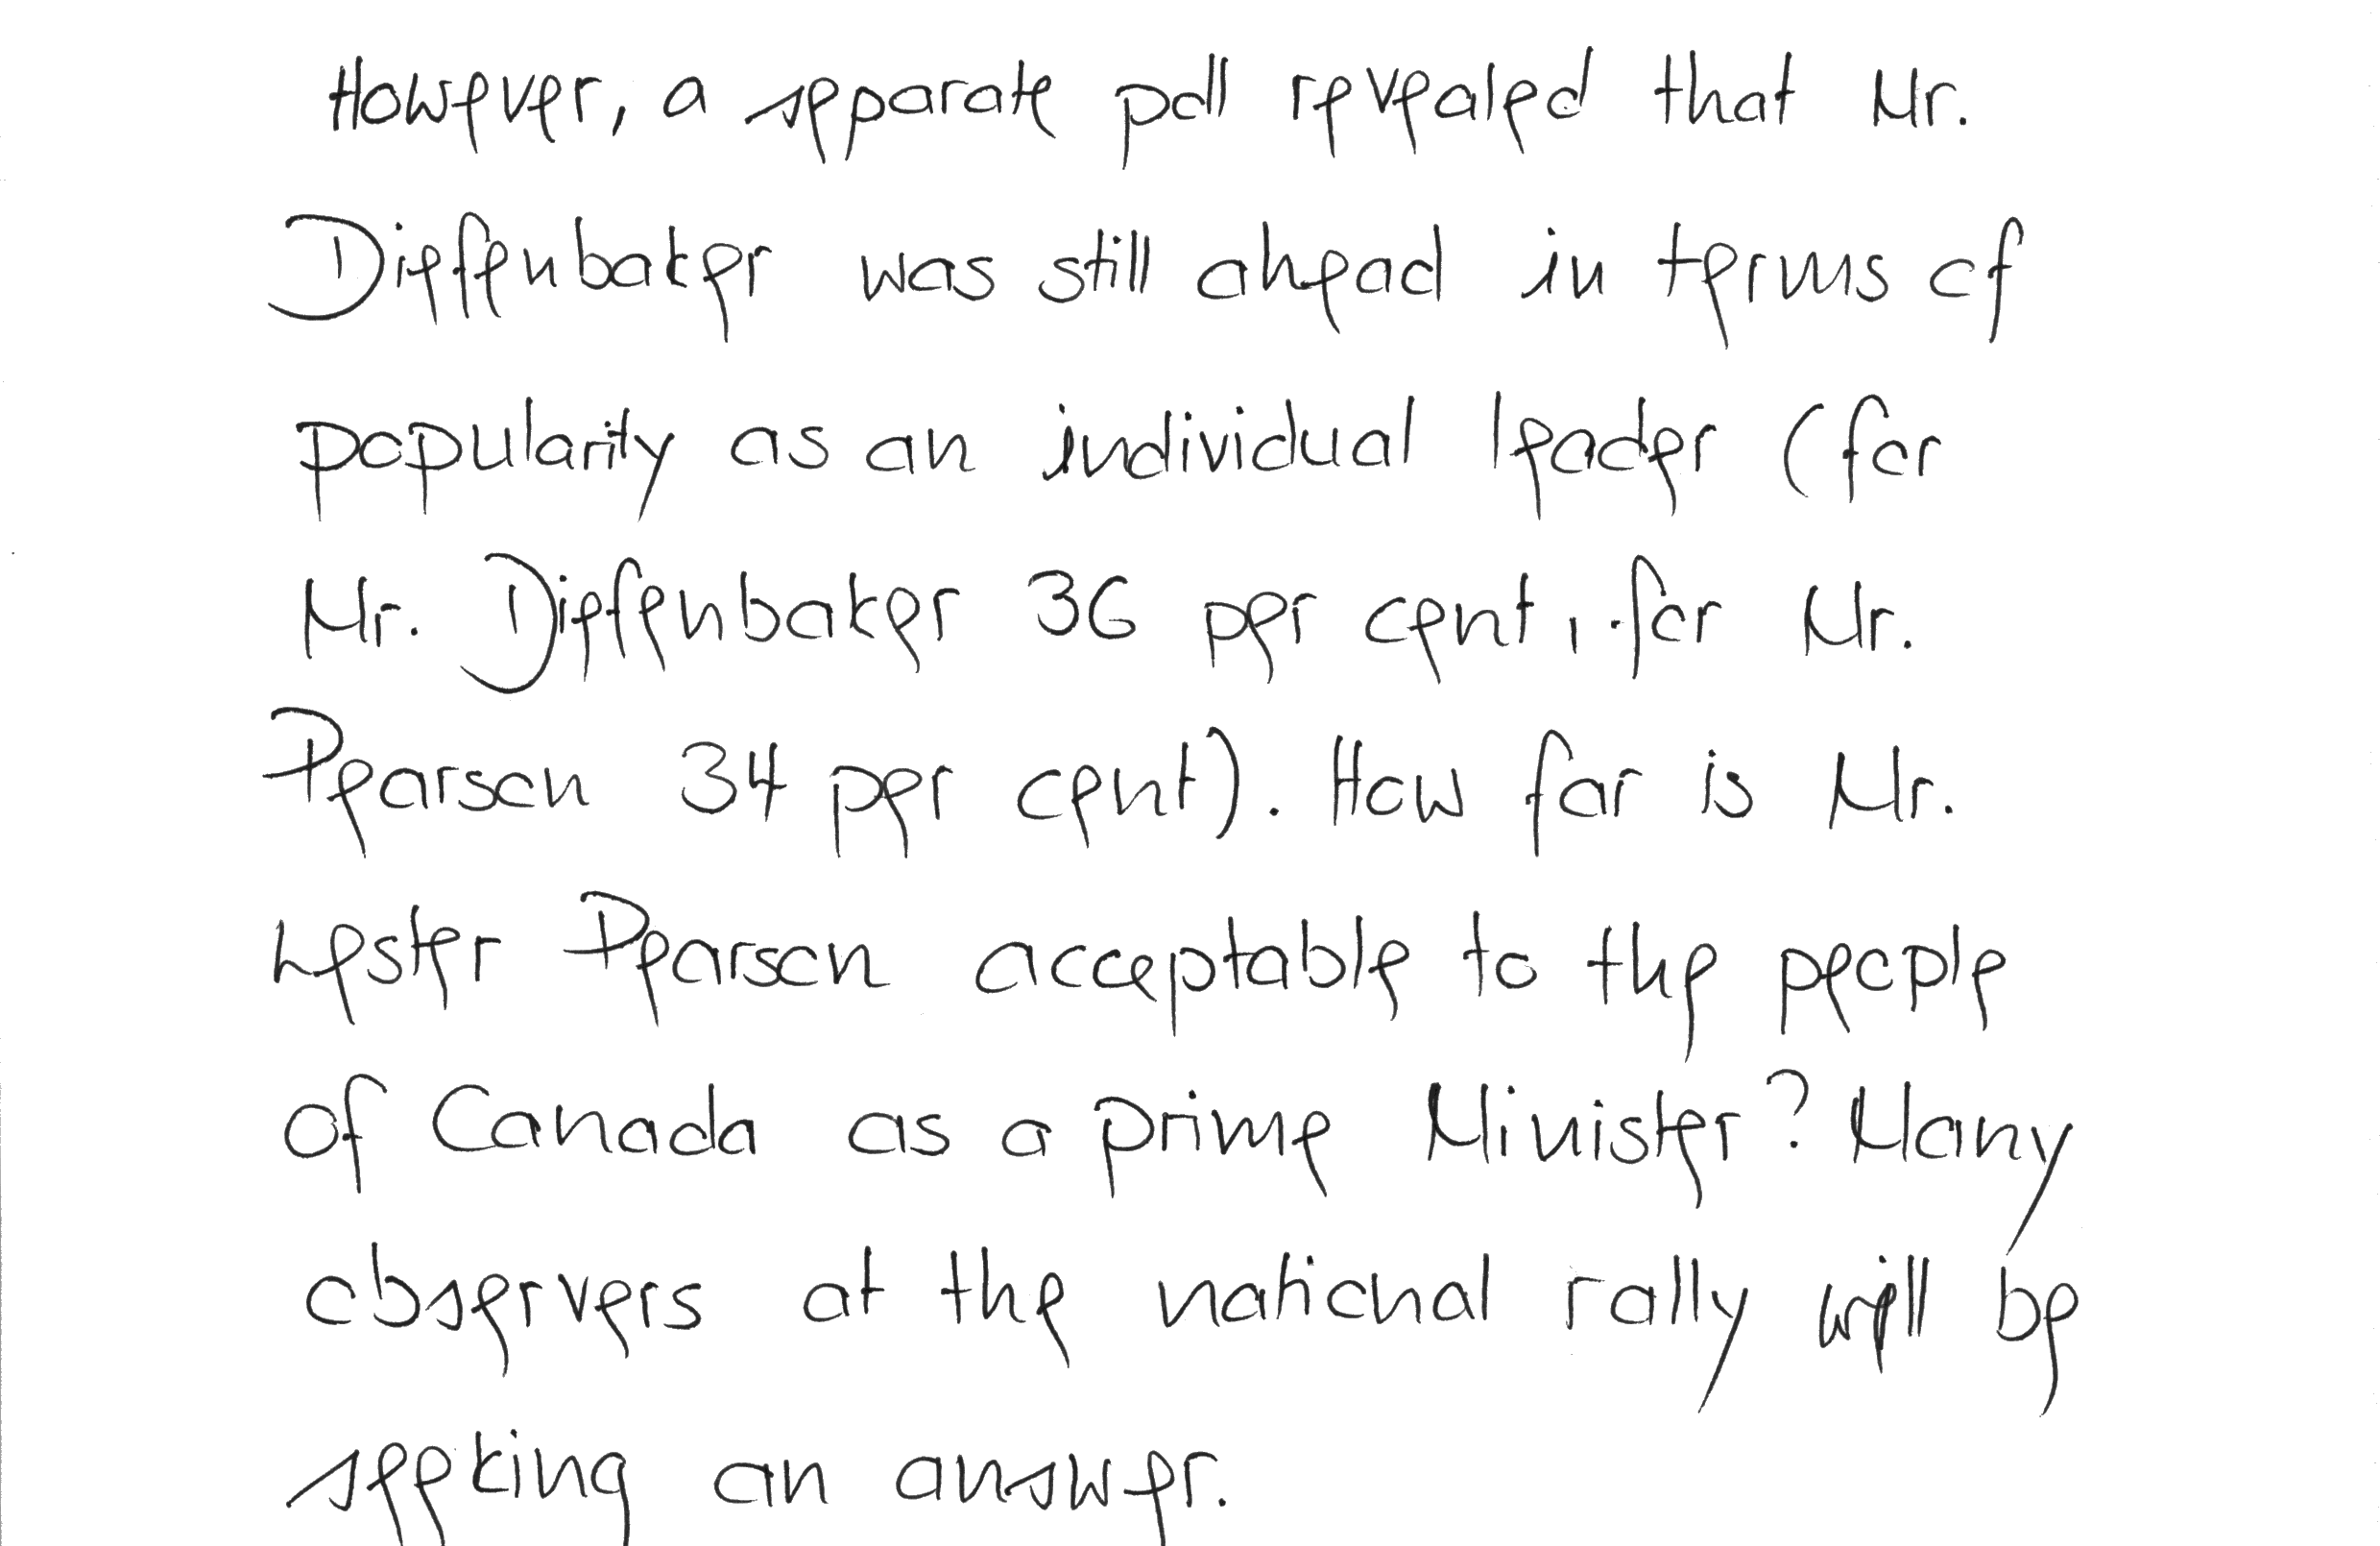 However, a separate poll revealed that Mr.
Diefenbaker was still ahead in terms of
popularity as an individual leader (for
Mr. Diefenbaker 36 per cent, for Mr.
Pearson 34 per cent). How far is Mr.
Lester Pearson acceptable to the people
of Canada as a prime Minister? Many
observers at the national rally will be
seeking an answer.